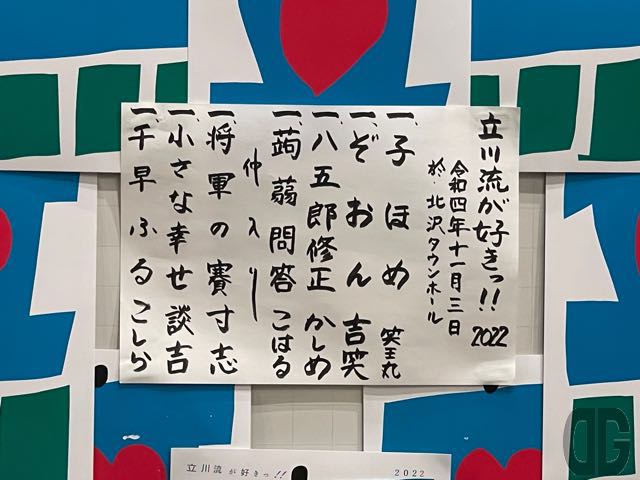 立川流が好きっ!! 2022
令和四年十一月三日
於:北沢タウンホール
一、子ほめ 笑王丸
一、ぞおん 吉笑
一、八五郎修正 かしめ
一、蒟蒻問答 こはる
仲入り
一、将軍の賽 寸志
一、小さな幸せ 談吉
一、千早ふる こしら
立川流が好きっ!! 2022
DG